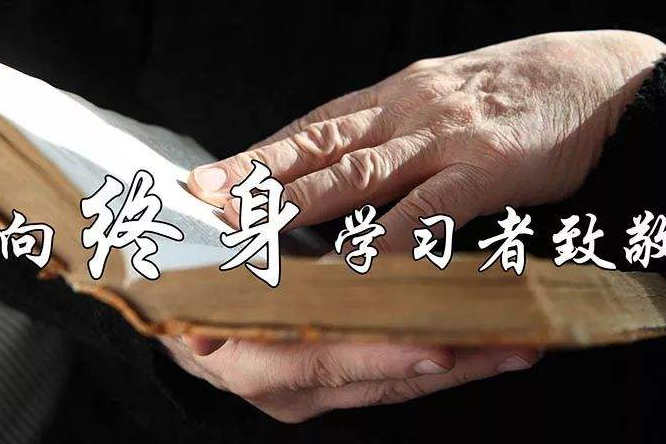 向终身学习者致敬